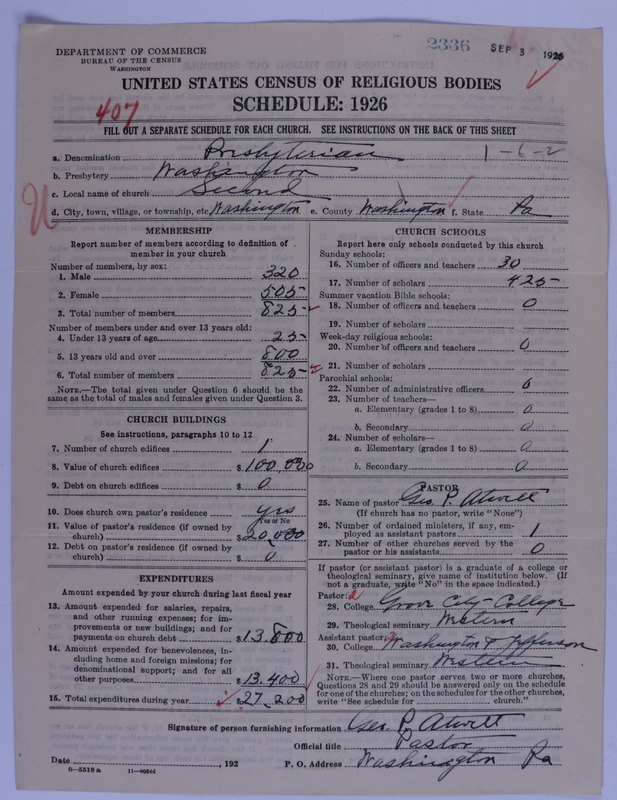 2336 SEP 3 1926
DEPARTMENT OF COMMERCE
BUREAU OF THE CENSUS
WASHINGTON
UNITED STATES CENSUS OF RELIGIOUS BODIES
SCHEDULE: 1926
407
FILL OUT A SEPARATE SCHEDULE FOR EACH CHURCH. SEE INSTRUCTIONS ON THE BACK OF THIS SHEET
a. Denomination Presbyterian 1-6-2
b. Presbytery Washington
c. Local name of church Second
U
d. City, town, village, or township, etc. Washington e. County Washington f. State Pa
MEMBERSHIP
Report number of members according to definition of
member in your church
Number of members, by sex:
1. Male 320
2. Female 505
3. Total number of members 825
Number of members under and over 13 years old:
4. Under 13 years of age 25
5. 13 years old and over 800
6. Total number of members 825
NOTE.—The total given under Question 6 should be
same as the total of males and females given under Question 3.
CHURCH BUILDINGS
See instructions, paragraphs 10 to 12
7. Number of church edifices 1
8. Value of church edifices $100,000
9. Debt on church edifices $0
10. Does church own pastor's residence yes
Yes or No
11. Value of pastor's residence (if owned by
church) $20,000
12. Debt on pastor's residence (if owned by
church) $0
EXPENDITURES
Amount expended by your church during last fiscal year
13. Amount expended for salaries, repairs,
and other running expenses; for im-
provements or new buildings; and for
payments on church debt $13.800
14. Amount expended for benevolences, in-
cluding home and foreign missions; for
denominational support; and for all
other purposes $13.400
15. Total expenditures during year $27.200
CHURCH SCHOOLS
Report here only schools conducted by this church
Sunday schools:
16. Number of officers and teachers 30
17. Number of scholars 425
Summer vacation Bible schools:
18. Number of officers and teachers 0
19. Number of scholars
Week-day religious schools:
20. Number of officers and teachers 0
21. Number of scholars
Parochial schools:
22. Number of administrative officers 0
23. Number of teachers—
a. Elementary (grades 1 to 8) 0
b. Secondary 0
24. Number of scholars—
a. Elementary (grades 1 to 8) 0
b. Secondary 0
PASTOR
25. Name of pastor Geo. P. Atwell
(If church has no pastor, write "None")
26. Number of ordained ministers, if any, em-
ployed as assistant pastors 1
27. Number of other churches served by the
pastor or his assistants 0
If pastor (or assistant pastor) is a graduate of a college or
theological seminary, give name of institution below. (If
not a graduate, write "No" in the space indicated.)
Pastor: 2
28. College Grove City College
29. Theological seminary Western
Assistant pastor:
30. College Washington & Jefferson
31. Theological seminary Western
NOTE.—Where one pastor serves two or more churches,
Questions 28 and 29 should be answered only on the schedule
for one of the churches; on the schedules for the other churches,
write "See schedule for church."
Signature of person furnishing information Geo. P. Atwell
Official title Pastor
Date , 192 P. O. Address Washington Pa
8—5518 a